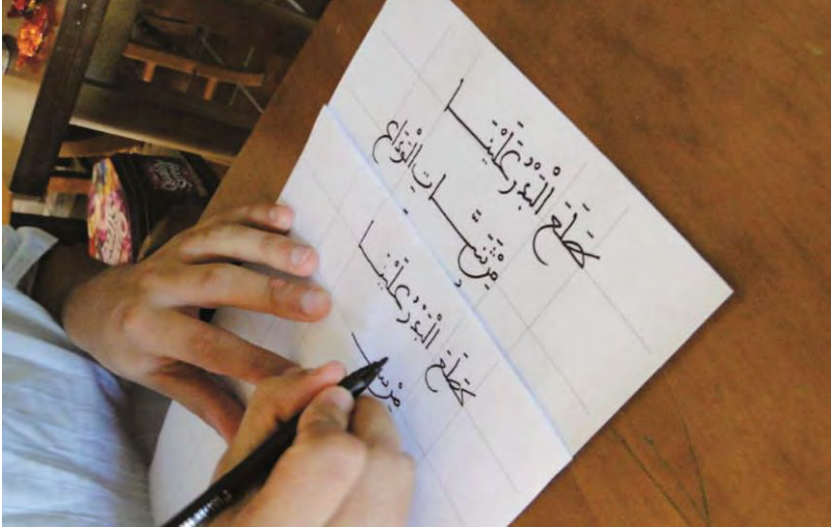 طَلَعَ الْبَدْرُ عَلَيْنَا
مِنْ ثَنِيَّاتِ الْوَدَاع
طَلَعَ الْبَدْرُ عَلَيْنَا
مِنْ